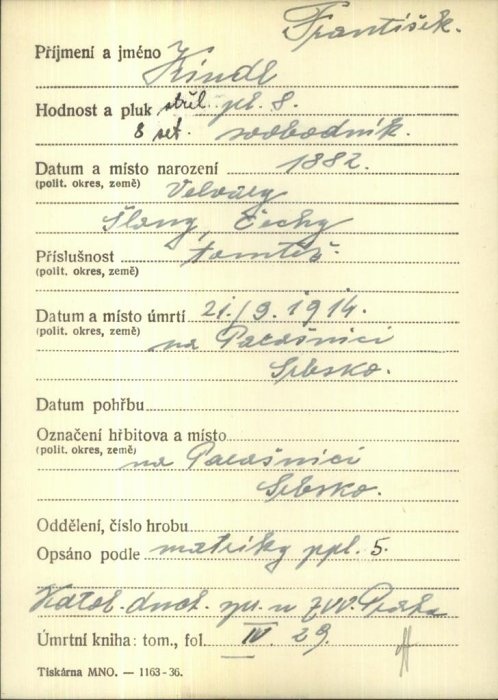 František.
Příjmení a jméno Kindl
Hodnost a pluk střel. pl. 8.
8 set. svobodník.
Datum a místo narození 1882.
(polit. okres, země) Velvary
Slaný, Čechy
Příslušnost tamtéž.
(polit. okres, země)
Datum a místo úmrtí 21./9. 1914.
(polit. okres, země) na Parašnici
Srbsko.
Datum pohřbu
Označení hřbitova a místo
(polit. okres, země) na Parašnici
Srbsko.
Oddělení, číslo hrobu
Opsáno podle matriky ppl. 5.
Katol. duch. spr. u ZVV. Praha
Úmrtní kniha: tom., fol. IV. 29.
Tiskárna MNO. — 1163-36.